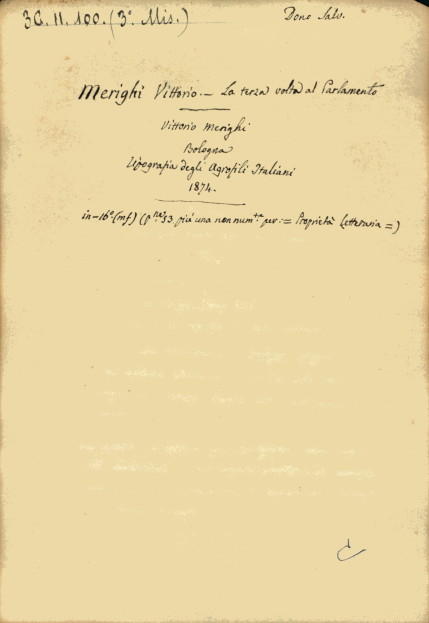 3G. 11. 100. (3º Mis.)
Dono Salv.
Merighi Vittorio. – La terza volta al Parlamento
Vittorio Merighi
Bologna
Tipografia degli Agrofili Italiani
1874.
in-16º (mf) (pne 53 più una non numta per := Proprietà Letteraria =)